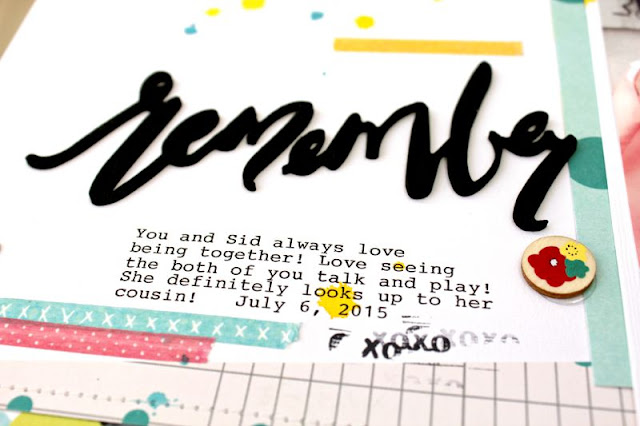 remember
You and Sid always love
being together! Love seeing
the both of you talk and play!
She definitely looks up to her
cousin!   July 6, 2015
xoxo xoxo